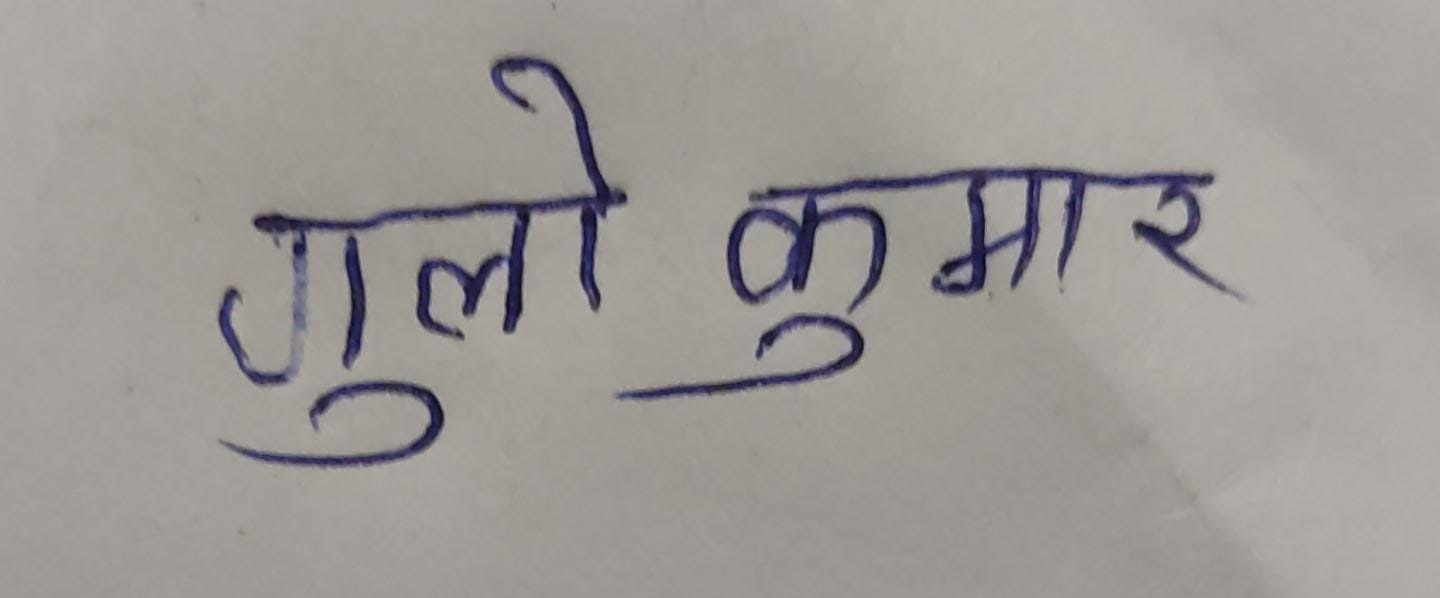 गुलो कुमार